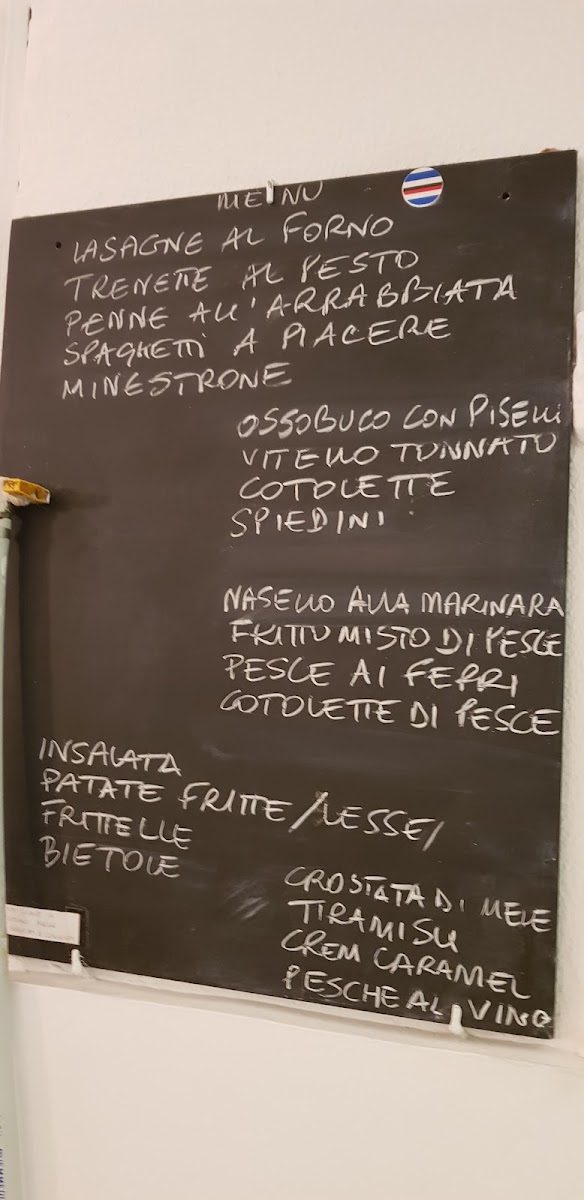 MENU
LASAGNE AL FORNO
TRENETTE AL PESTO
PENNE ALL'ARRABBIATA
SPAGHETTI A PIACERE
MINESTRONE
OSSOBUCO CON PISELLI
VITELLO TONNATO
COTOLETTE
SPIEDINI
NASELLO ALLA MARINARA
FRITTO MISTO DI PESCE
PESCE AI FERRI
COTOLETTE DI PESCE
INSALATA
PATATE FRITTE/LESSE/
FRITTELLE
BIETOLE
CROSTATA DI MELE
TIRAMISU
CREM CARAMEL
PESCHE AL VINO